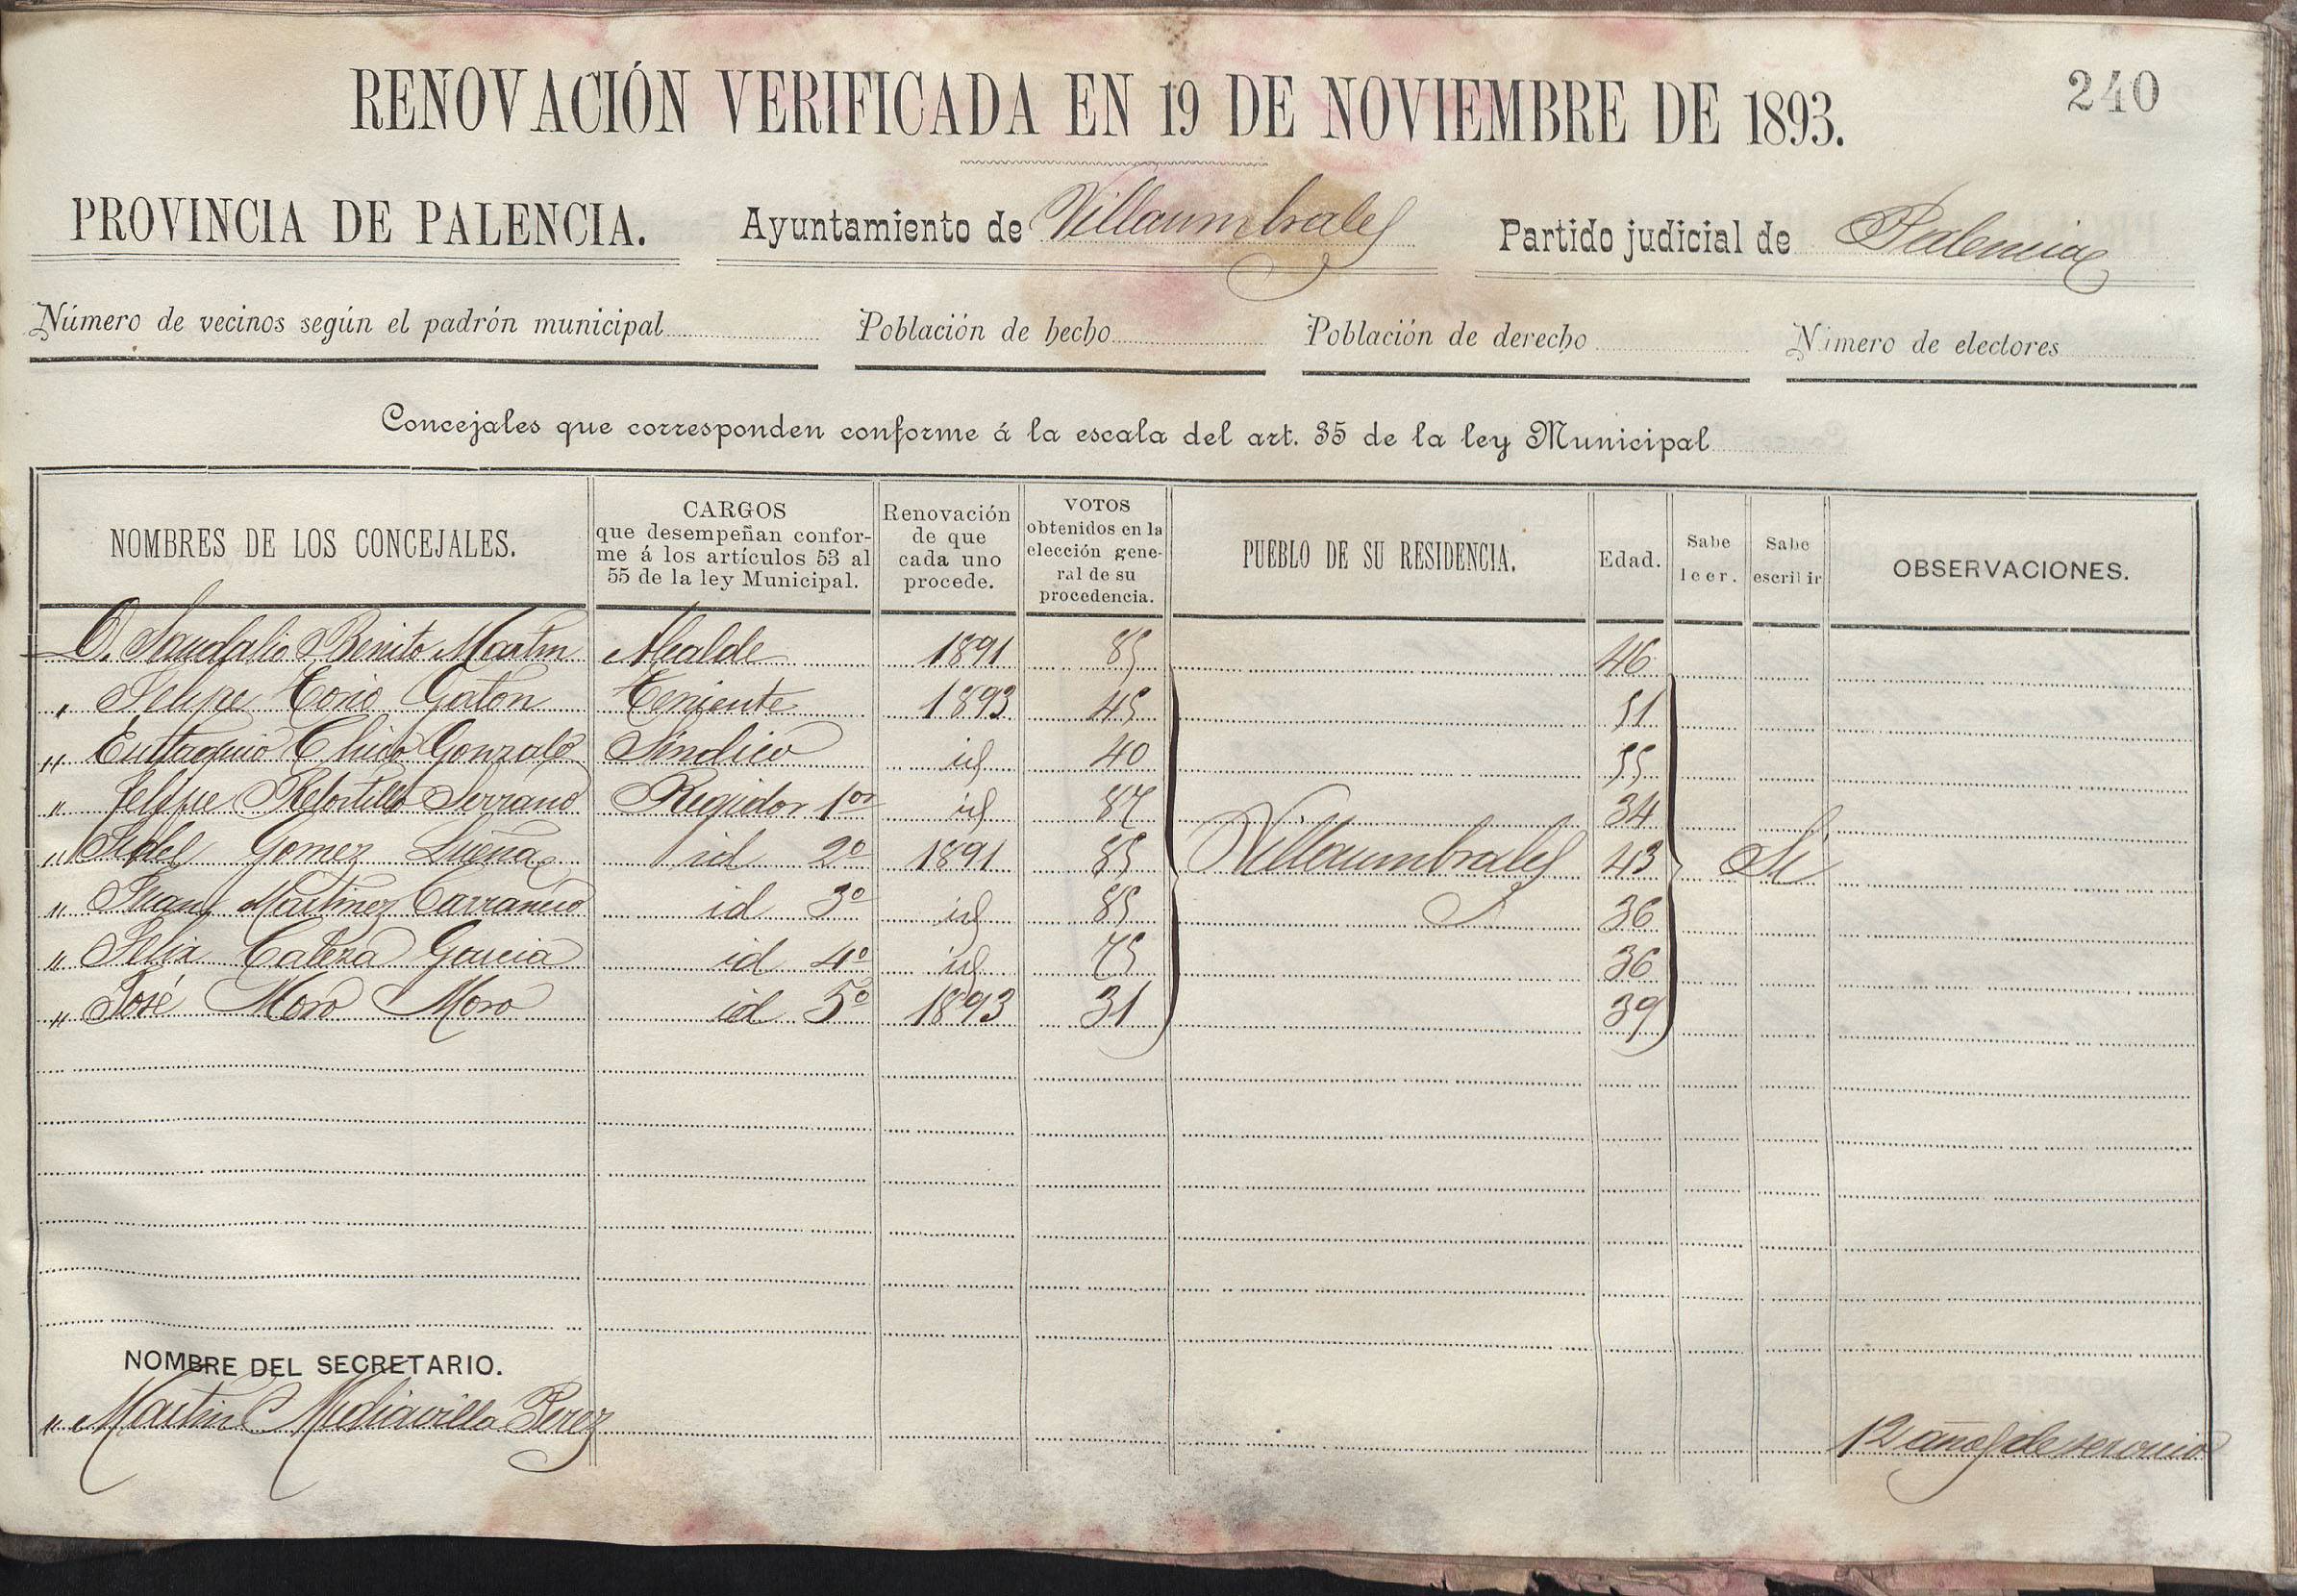 240
RENOVACIÓN VERIFICADA EN 19 DE NOVIEMBRE DE 1893.
PROVINCIA DE PALENCIA. Ayuntamiento de Villaumbrales Partido judicial de Palencia
Número de vecinos según el padrón municipal Población de hecho Población de derecho Número de electores
Concejales que corresponden conforme á la escala del art. 35 de la ley Municipal
NOMBRES DE LOS CONCEJALES.
CARGOS
que desempeñan confor-
me á los artículos 53 al
55 de la ley Municipal.
Renovación
de que
cada uno
procede.
VOTOS
obtenidos en la
elección gene-
ral de su
procedencia.
PUEBLO DE SU RESIDENCIA.
Edad.
Sabe
leer.
Sabe
escribir
OBSERVACIONES.
D. Sandalio Benito Martin Alcalde 1891 85 46
" Felipe Torio Gaton Teniente 1893 45 51
" Eustaquio Chico Gonzalez Sindico id 40 55
" Felipe Retortillo Serrano Regidor 1er id 87 34
" Fidel Gomez id 2º 1891 85 Villaumbrales 43 Si
" Juan Martinez Carrancio id 3º id 85 36
" Felix Cabeza Garcia id 4º id 75 36
" José Moro Moro id 5º 1893 31 39
NOMBRE DEL SECRETARIO.
" Martin Mediavilla Perez 12 años de servicio